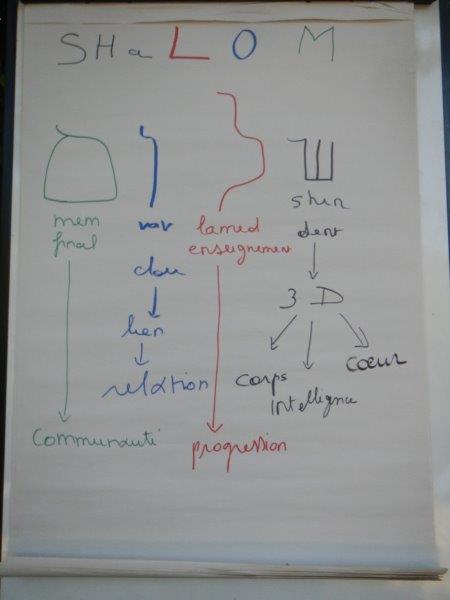 SHaLOM
ש ל ו ם
mem
final
communauté
vav
clou
lien
relation
lamed
enseignement
progression
shin
dent
3 D
corps
Intelligence
cœur